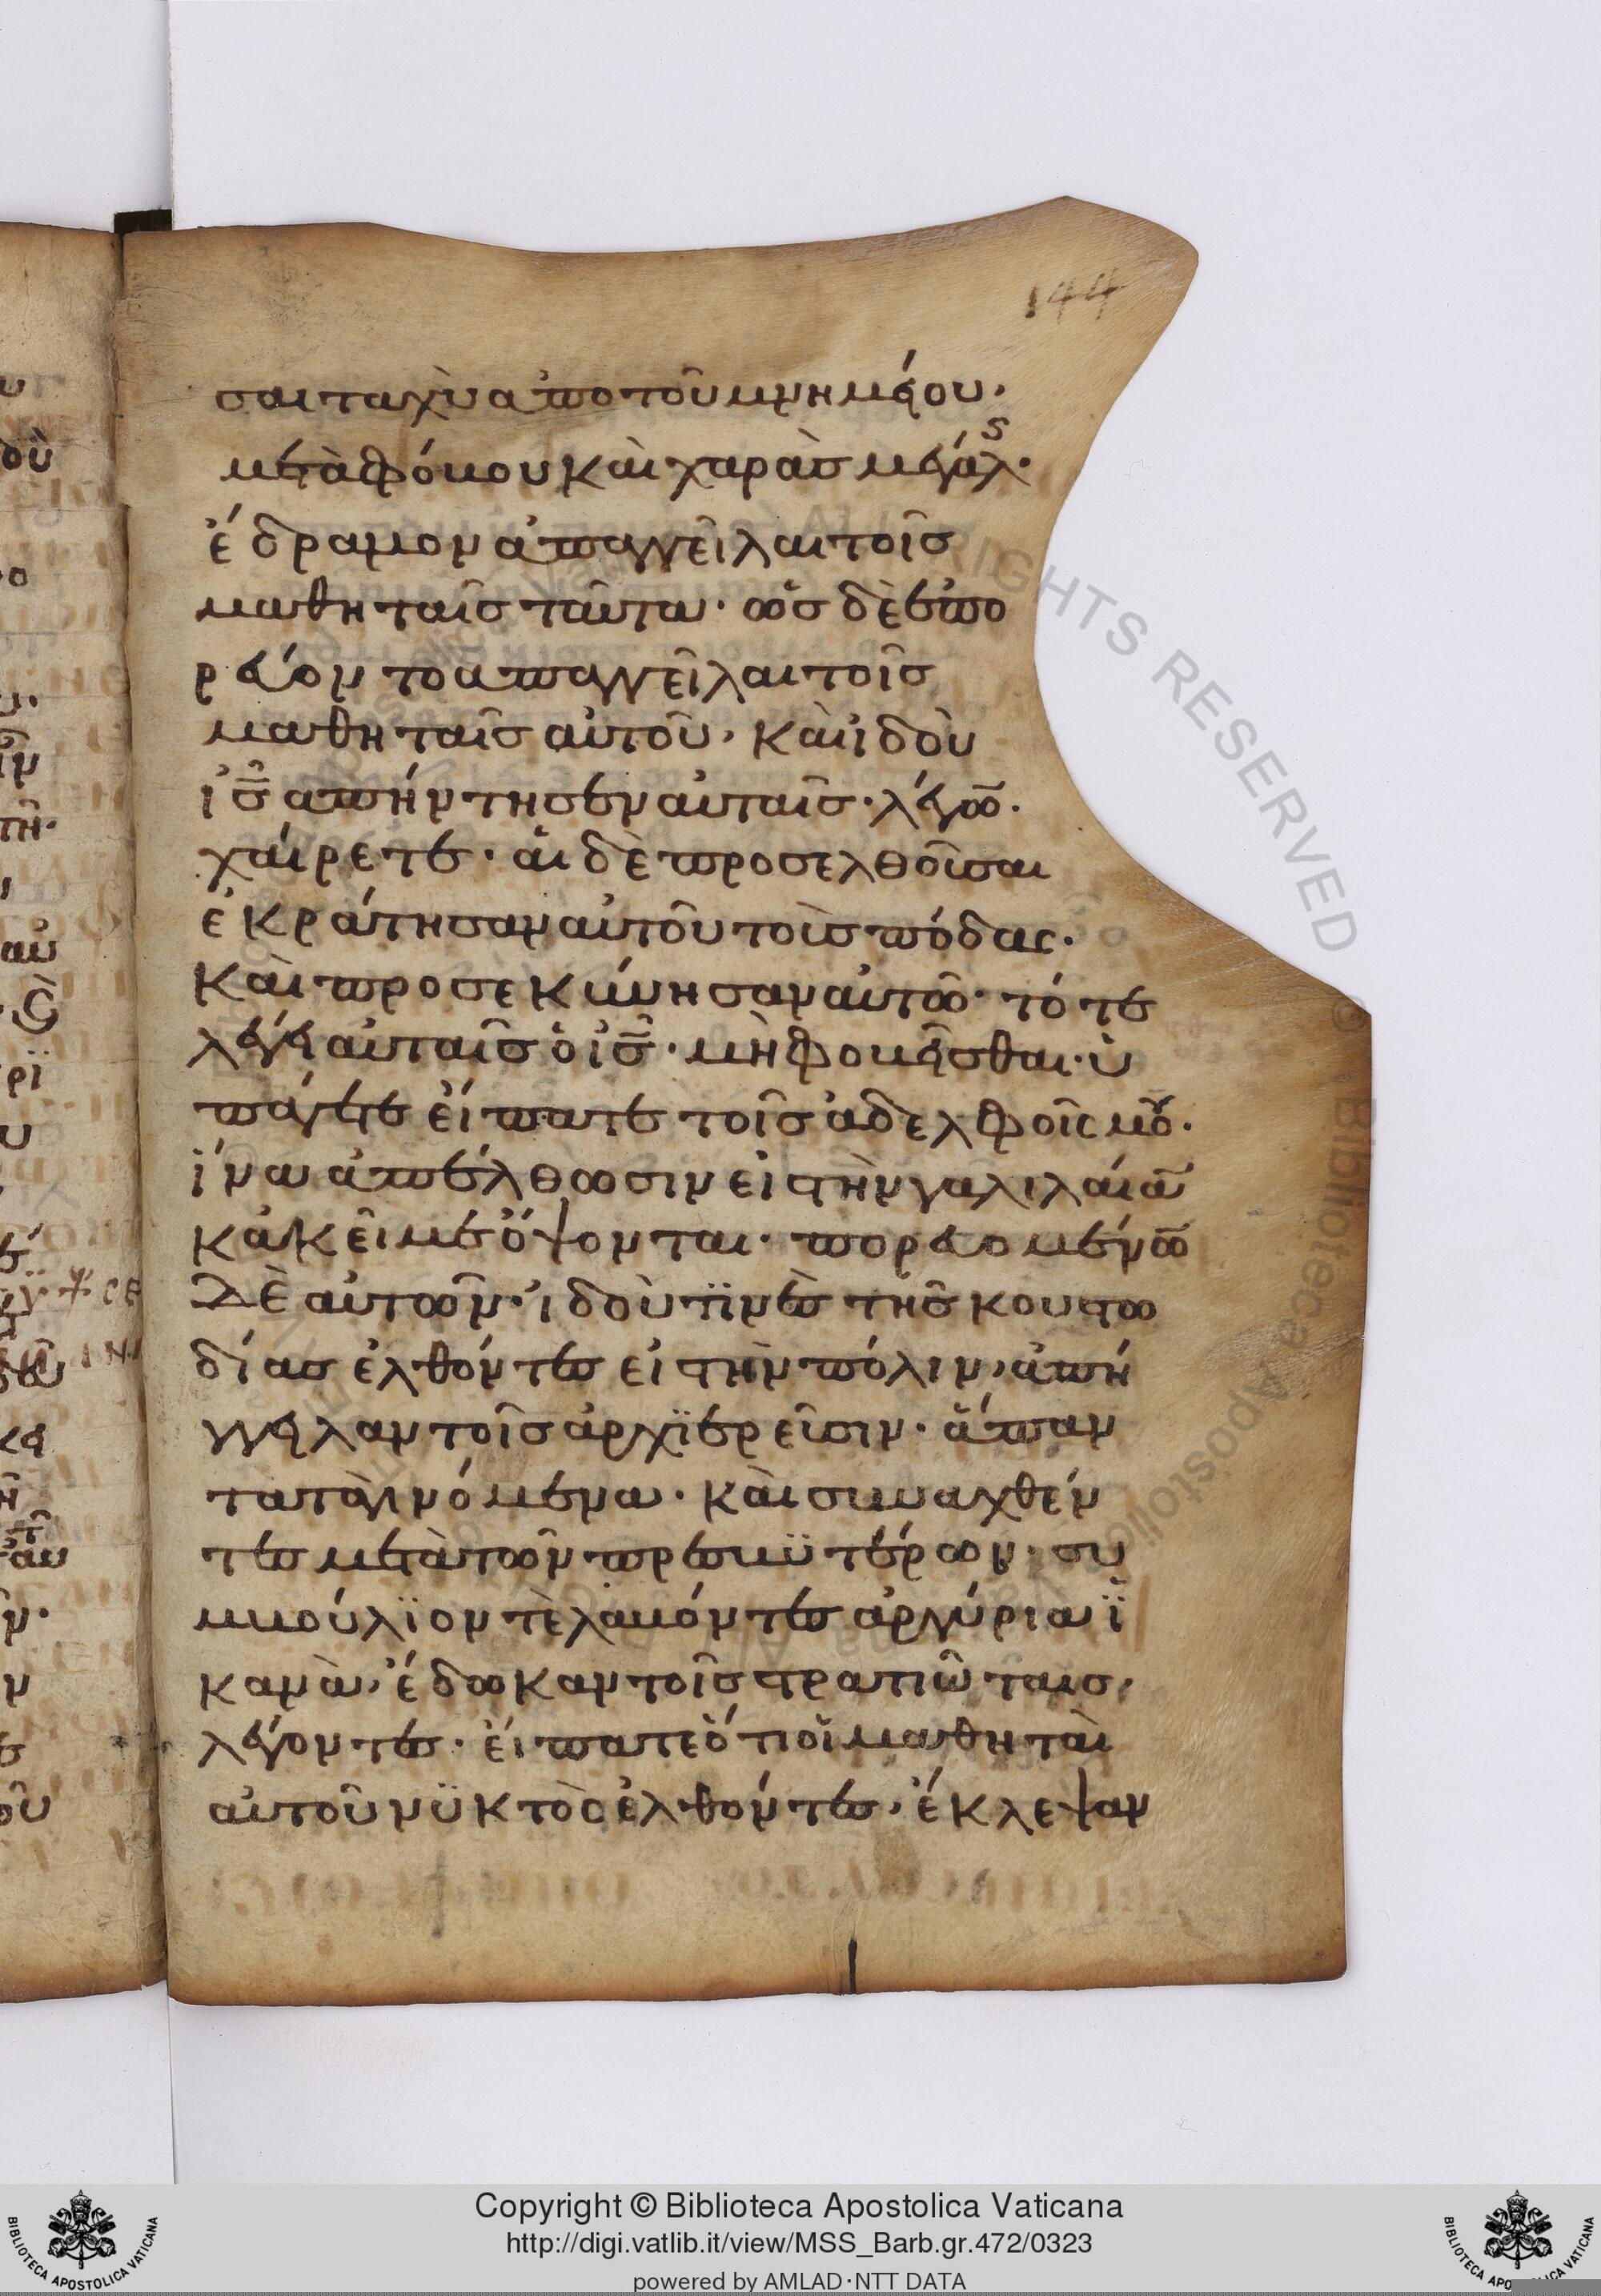 144
σαι ταχὺ ἀπο τοῦ μνημείου,
μετὰ φόβου καὶ χαρὰσ μεγάλς·
ἔδραμον ἀπαγγεῖλαι τοῖσ
μαθηταῖσ ταῦτα· ὡσ δὲ ἐπο
ρεύον το ἀπαγγεῖλαι τοῖσ
μαθηταῖσ αὐτοῦ, καὶ ἰδοὺ
ἰσ̅ ἀπήντησεν αὐταῖσ· λέγω̅·
χαίρετε· αἱ δὲ προσελθοῦσαι
ἐκράτησαν αὐτοῦ τοὺσ πόδας·
καὶ προσεκύνησαν αὐτῶ· τότε
λέγει αὐταῖσ ὁ ἰσ̅· μὴ φοβεῖσθαι· ὑ
πάγετε εἴπατε τοῖσ ἀδελφοῖς μȣ·
ἵνα ἀπέλθωσιν εἰ στὴν γαλιλαία̅
κἀκεῖ με ὄψονται· πορευομένω̅
δὲ αὐτῶν· ἰδοὺ τϊνὲσ τῆσ κουστω
δίασ ἐλθόντεσ εἰ στὴν πόλιν, ἀπή
γγειλαν τοῖσ ἀρχϊερεῦσιν· ἅπαν
τα τὰ γινόμενα· καὶ συναχθέν
τεσ μετὰ τῶν πρεσβϋτέρων· συ
μβούλϊον τὲ λαβόντεσ ἀργύρια ϊ
κανὰ, ἔδωκαν τοῖσ στρατιῶταισ,
λέγοντεσ· εἴπατε ὅτι οἱ μαθηταὶ
αὐτοῦ νϋκτὸς ἐλθόντεσ, ἔκλεψαν
Copyright © Biblioteca Apostolica Vaticana
http://digi.vatlib.it/view/MSS_Barb.gr.472/0323
powered by AMLAD·NTT DATA